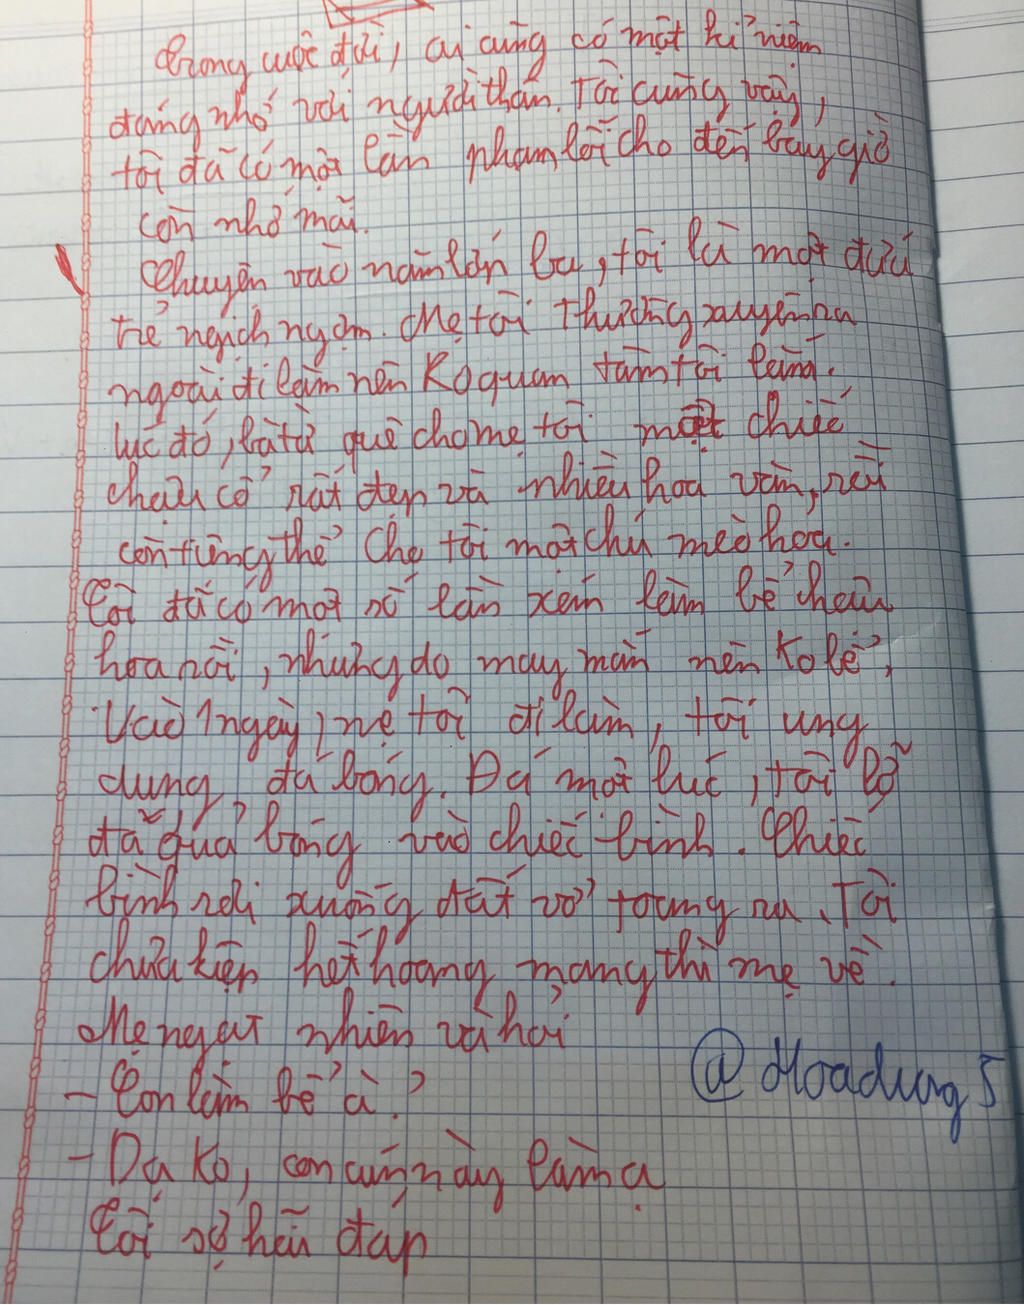 Trong cuộc đời, ai cũng có một kỉ niệm
đáng nhớ với người thân. Tôi cũng vậy,
tôi đã có một lần phạm lỗi cho đến bây giờ
còn nhớ mãi.
Chuyện vào năm lớp ba, tôi là một đứa
trẻ nghịch ngợm. Mẹ tôi thường xuyên ra
ngoài đi làm nên Ko quan tâm tôi lắm.
lúc đó, bà từ quê cho mẹ tôi một chiếc
chậu cổ rất đẹp và nhiều hoa văn, rồi
còn từng thể cho tôi một chú mèo hoa.
Tôi đã có một số lần xém làm bể chậu
hoa rồi, nhưng do may mắn nên Ko bể,
Vào 1 ngày, mẹ tôi đi làm, tôi ung
dung đá bóng. Đá một lúc, tôi lỡ
đá quả bóng vào chiếc bình. Chiếc
bình rơi xuống đất vỡ toang ra. Tôi
chưa kịp hết hoang mang thì mẹ về.
Mẹ ngạt nhiên và hỏi
- Con làm bể à?
- Dạ Ko, con cún này làm ạ
Tôi sợ hãi đáp
@Hoadung5